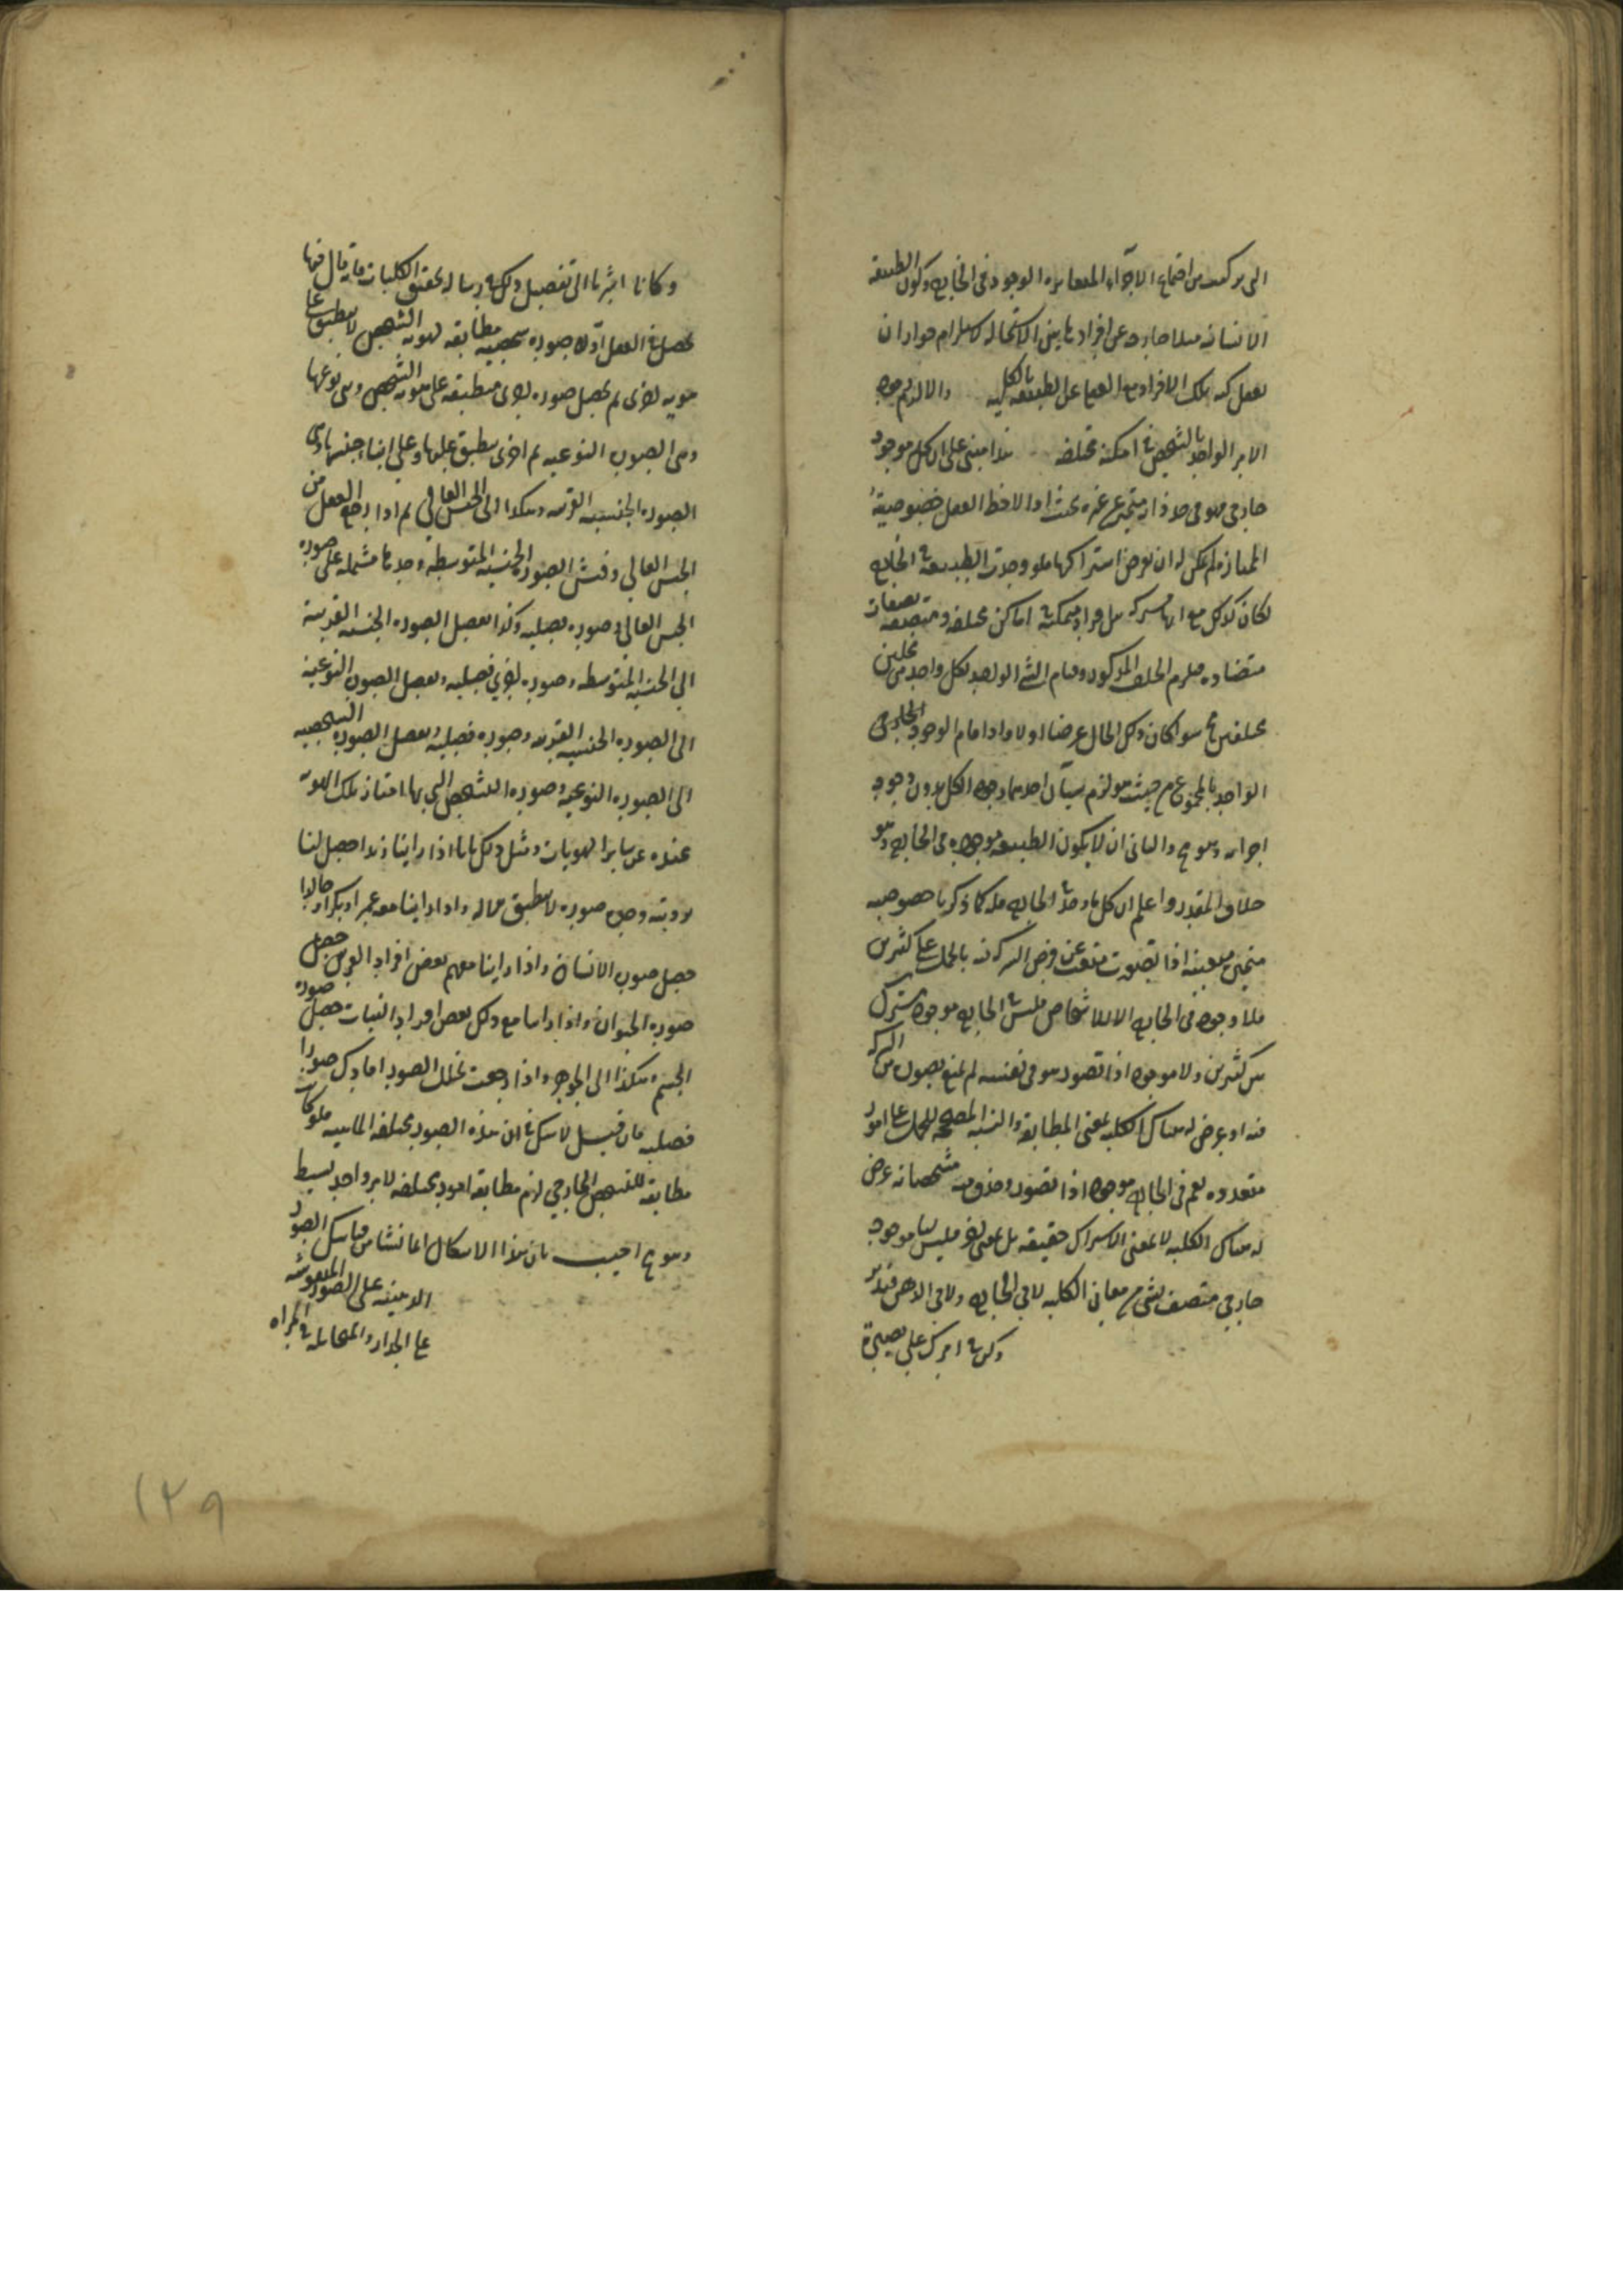 الى تركبت من اجتماع الاجزاء المتغايرة الوجود في الخارج وكون الطبيعة
الانسانية مثلا خارجة عن افرادها بين الاستحالة لاستلزام جواز ان
تعقل كنه تلك الافراد مع عن الطبيعة بالكلية والا لزم وجود
الامر الواحد بالشخص في امكنة مختلفة هذا مبني على ان كل موجود
خارجي فهو في حد ذاته متميز عن غيره بحيث اذا لاحظ العقل خصوصية
الممتاز لم يمكن له ان يفرض اشتراكها فلو وجدت الطبيعة في الخارج
لكان كذلك مع انها مشتركة بين افراد متمكنة في اماكن مختلفة ومتصفة بصفات
متضادة فلزم الخلف المذكور وقيام الشئ الواحد لكل واحد من محلين
مختلفين مح سواء كان ذلك الحال عرضا اولا واذا قام الوجود الخارجي
الواحد بالمجموع من حيث هو لزم شيآن احدهما وجود الكل بدون وجود
اجزائه وهو مح والثاني ان لا يكون الطبيعة موجودة في الخارج وهو
خلاف المقدر واعلم ان كل ما وجد في الخارج فله كما ذكرنا خصوصية
متميزة متعينة اذا تصورت منعت عن فرض الشركة فيه بالحمل على كثيرين
فلا وجود في الخارج الا للاشخاص فليس في الخارج موجود مشترك
بين كثيرين ولا موجود اذا تصور هو في نفسه لم يمنع تصوره من الشركة
فيه او عرض له هناك الكلية بمعنى المطابقة والنسبة المصححة للحمل على امور
متعددة نعم في الخارج موجود اذا تصور وحذف عنه مشخصاته عرض
له هناك الكلية لا بمعنى الاشتراك حقيقة بل بمعنى آخر فليس لنا موجود
خارجي متصف بشئ من معاني الكلية لا في الخارج ولا في الذهن فتدبر
وكن في امرك على بصيرة
وكانا اشرنا الى تفصيل ذلك في رسالة تحقيق الكليات فانه قال فيها
تحصل في العقل اولا صورة شخصية مطابقة لهوية الشخص لا تنطبق على
هوية اخرى ثم تحصل صورة اخرى منطبقة على هوية الشخص وبني نوعها
وهي الصورة النوعية ثم اخرى تنطبق عليها وعلى ابناء جنسها وهي
الصورة الجنسية القريبة وهكذا الى الجنس العالي ثم اذا رجع العقل من
الجنس العالي وفتش الصورة الجنسية المتوسطة وجدها مشتملة على صورة
الجنس العالي وصورة فصلية وكذا تفصيل الصورة الجنسية القريبة
الى الجنسية المتوسطة وصورة اخرى فصلية وتفصيل الصورة النوعية
الى الصورة الجنسية القريبة وصورة فصلية وتفصيل الصورة الشخصية
الى الصورة النوعية وصورة التشخص التي بها امتاز تلك الهوية
عنده عن سائر الهويات ومثل ذلك بانا اذا راينا زيدا حصل لنا
برويته وجه صورة لا تنطبق على ماله واذا راينا معه عمرا وبكرا وخالدا
حصل صورة الانسان واذا راينا معهم بعض افراد الفرس حصل
صورة الحيوان واذا راينا مع ذلك بعض افراد النبات حصل صورة
الجسم هكذا الى الجوهر واذا رجعت تحلل الصور افادك صورا
فصلية فان قيل لا شك في ان هذه الصور مختلفة الماهية فلو كانت
مطابقة للشخص الخارجي لزم مطابقة امور مختلفة لامر واحد بسيط
وهو مح اجيب بان هذا الاشكال انما نشأ من قياسك الصور
الذهنية على الصور المنقوشة
على الجدار والمتخايلة في المرآة
١٢٩